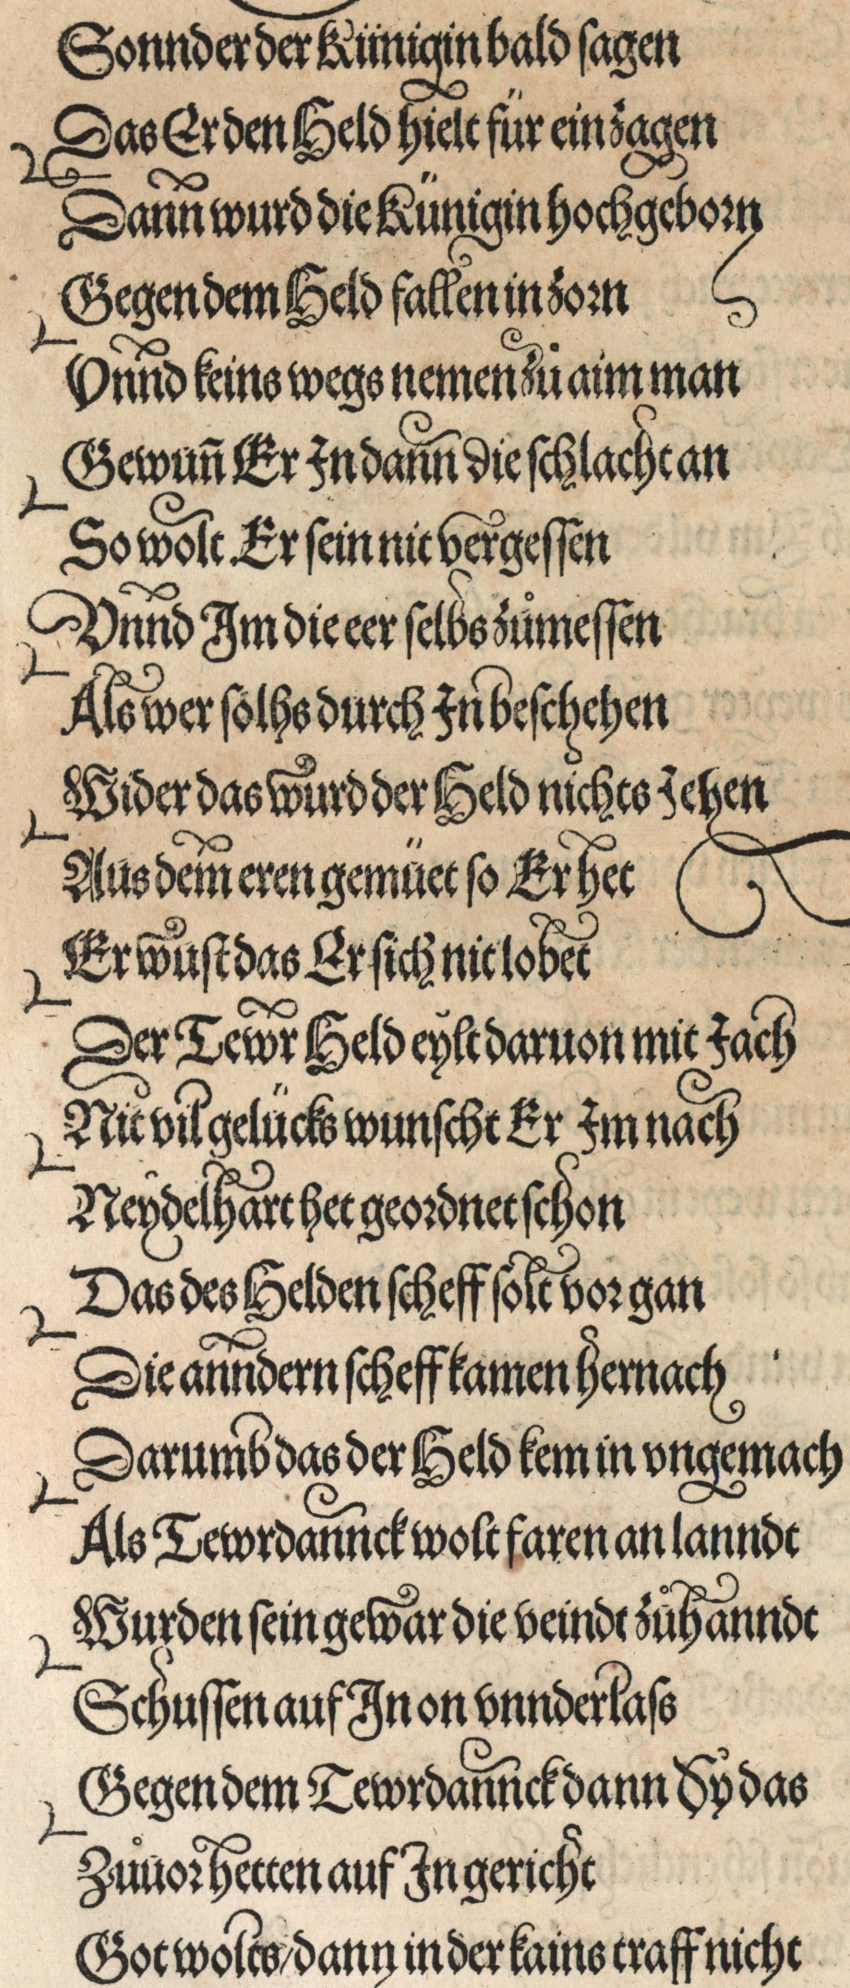 Sonnder der Künigin bald sagen
Das Er den Held hielt für ein zagen
Dann wurd die Künigin hochgeborn
Gegen dem Held fallen in zorn
Vnnd keins wegs nemen zů aim man
Gewun̄ Er In dann die schlacht an
So wolt Er sein nit vergessen
Vnnd Im die eer selbs zůmessen
Als wer solhs durch In beschehen
Wider das wurd der Held nichts Jehen
Aus dem eren gemüet so Er het
Er wust das Er sich nit lobet
Der Tewr Held eylt daruon mit Jach
Nit vil gelücks wunscht Er Im nach
Neydelhart het geordnet schon
Das des Helden scheff solt vor gan
Die anndern scheff kamen hernach
Darumb das der Held kem in vngemach
Als Tewrdannck wolt faren an lanndt
Wurden sein gewar die veindt zůhanndt
Schussen auf In on vnnderlass
Gegen dem Tewrdannck dann Sy das
Zůuor hetten auf In gericht
Got wolts/dann in der kains traff nicht